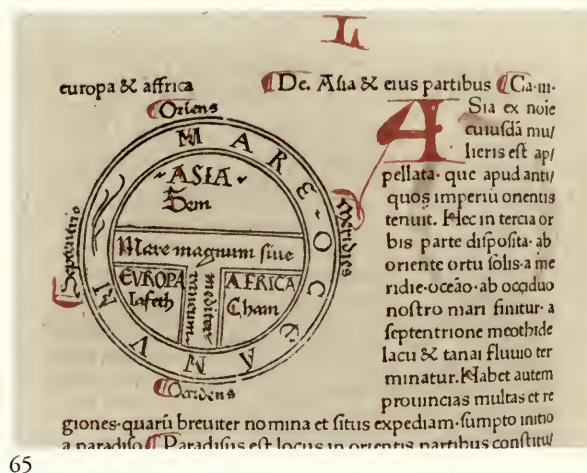 L
europa & affrica
¶De. Asia & eius partibus ¶Ca·iii·
¶Oriens
MARE OCEANUM
Septentrio
Meridies
·ASIA·
Sem
Mare magnum siue
mediterraneum
EVROPA
Iafeth
AFRICA
Cham
¶Occidens
ASia ex noie
cuiusdā mu/
lieris est ap/
pellata· que apud anti/
quos imperiū orientis
tenuit. Hec in tercia or
bis parte disposita· ab
oriente ortu solis· a me
ridie·oceāo·ab occiduo
nostro mari finitur· a
septentrione meothide
lacu & tanai fluuio ter
minatur. Habet autem
prouincias multas et re
giones·quarū breuiter nomina et situs expediam·sumpto initio
a paradiso ¶Paradisus est locus in orientis partibus constitu/
65